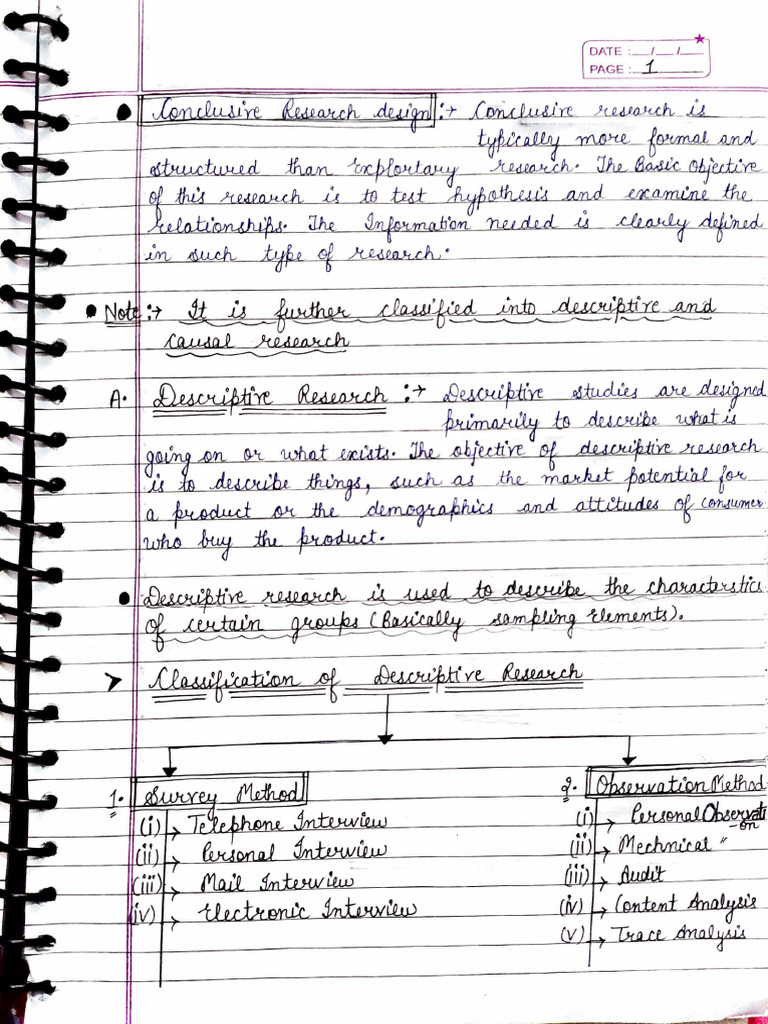 DATE : __/__/__
PAGE : 1
• Conclusive Research design :→ Conclusive research is
typically more formal and
structured than Explortary research. The Basic Objective
of this research is to test hypothesis and examine the
relationships. The Information needed is clearly defined
in such type of research.
• Note :→ It is further classified into descriptive and
causal research
A. Descriptive Research :→ Descriptive studies are designed
primarily to describe what is
going on or what exists. The objective of descriptive research
is to describe things, such as the market potential for
a product or the demographics and attitudes of consumer
who buy the product.
• Descriptive research is used to describe the characterstics
of certain groups (Basically sampling Elements).
➤ Classification of Descriptive Research
1. Survey Method
(i) → Telephone Interview
(ii) → Personal Interview
(iii) → Mail Interview
(iv) → Electronic Interview
2. Observation Method
(i) → Personal Observati
-on
(ii) → Mechnical "
(iii) → Audit
(iv) → Content Analysis
(v) → Trace Analysis